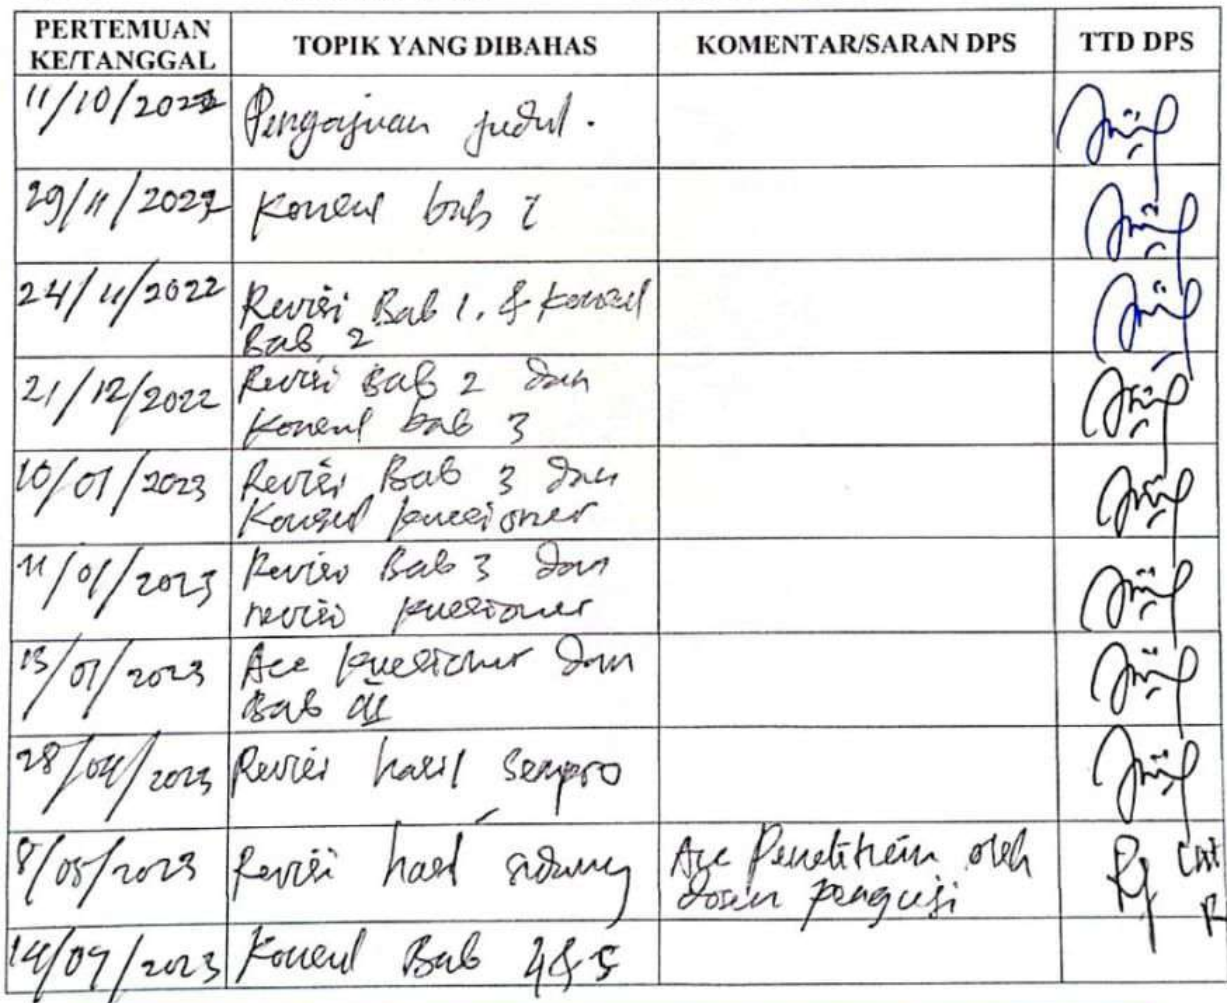 PERTEMUAN KE/TANGGAL TOPIK YANG DIBAHAS KOMENTAR/SARAN DPS TTD DPS
11/10/2022 Pengajuan judul.
29/11/2022 Konsul bab 1
24/11/2022 Revisi Bab 1. & Konsul
Bab 2
21/12/2022 Revisi Bab 2 dan
Konsul bab 3
10/01/2023 Revisi Bab 3 dan
Konsul kuesioner
11/01/2023 Revisi Bab 3 dan
revisi kuesioner
13/01/2023 Acc kuesioner dan
Bab
28/04/2023 Revisi hasil Sempro
8/05/2023 Revisi hasil sidang Acc Penelitian oleh
dosen penguji
14/09/2023 Konsul Bab 4 & 5